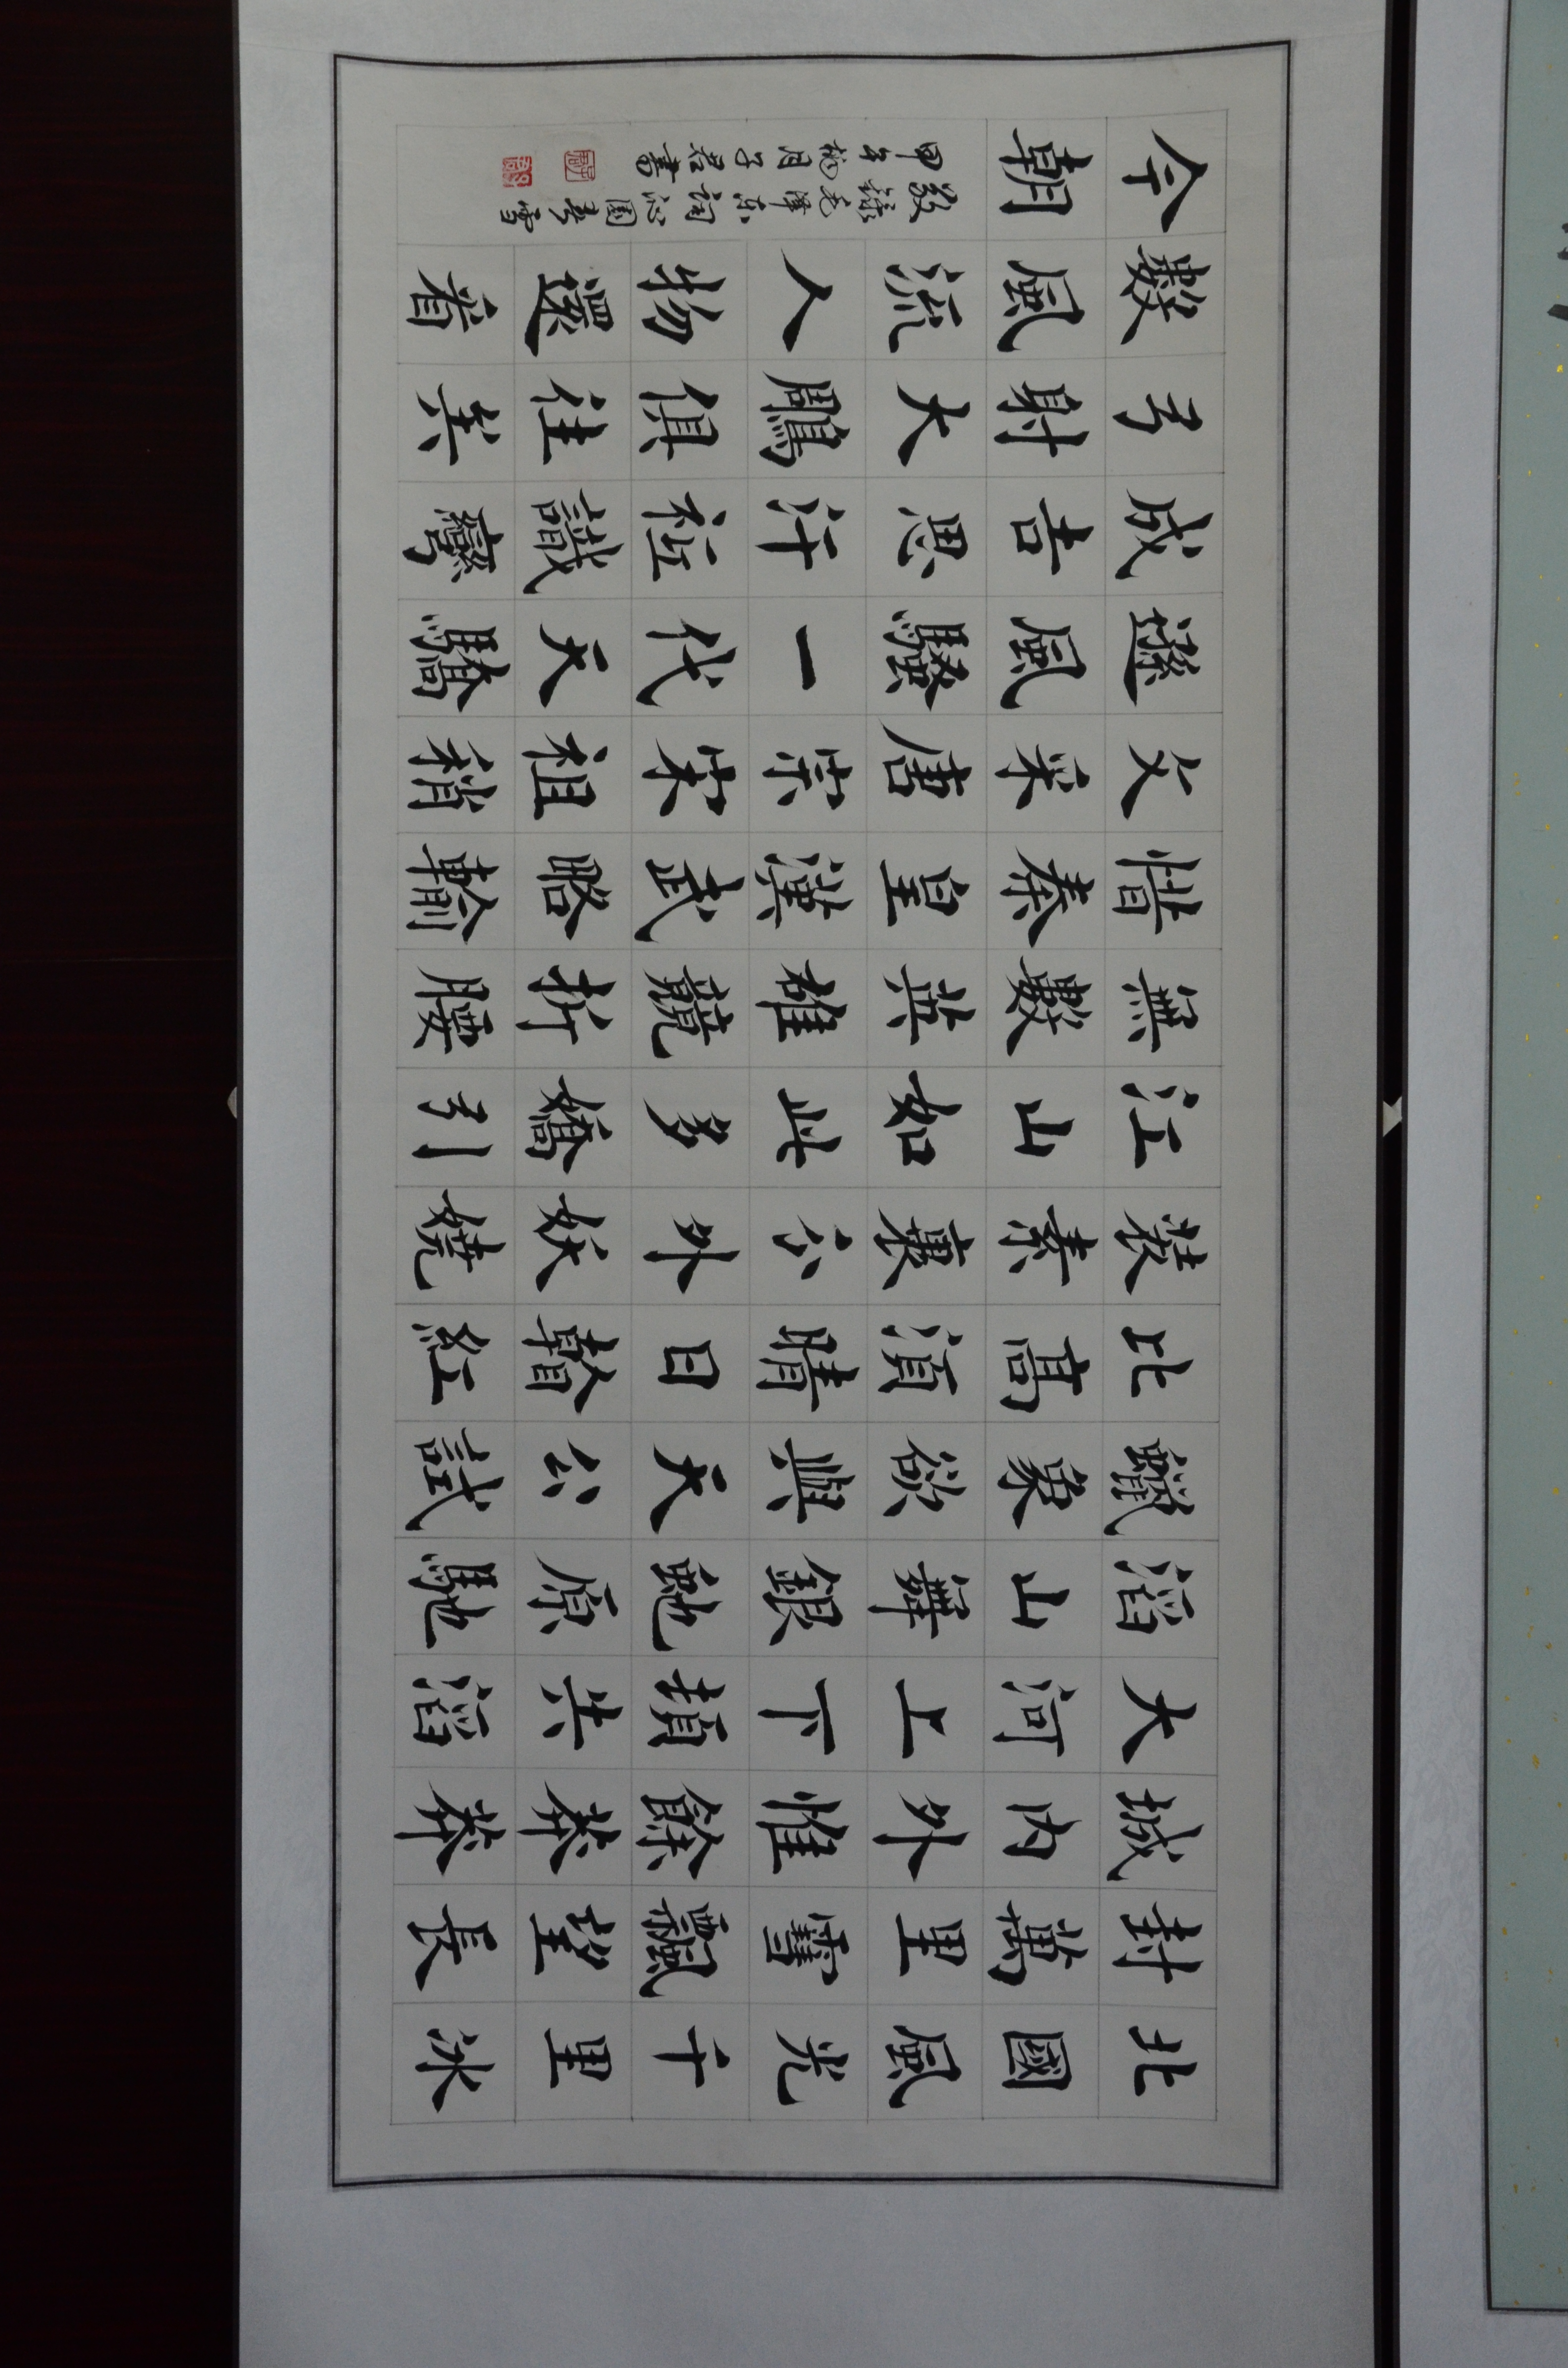 北國風光千里冰
封萬里雪飄望長
城内外惟餘莽莽
大河上下頓失滔
滔山舞銀蛇原馳
蠟象欲與天公試
比高須晴日看紅
裝素裹分外妖嬈
江山如此多嬌引
無數英雄競折腰
惜秦皇漢武略輸
文采唐宗宋祖稍
遜風騷一代天驕
成吉思汗衹識彎
弓射大鵰俱往矣
數風流人物還看
今朝
敬錄毛澤东詞沁園春雪
甲午月子君書